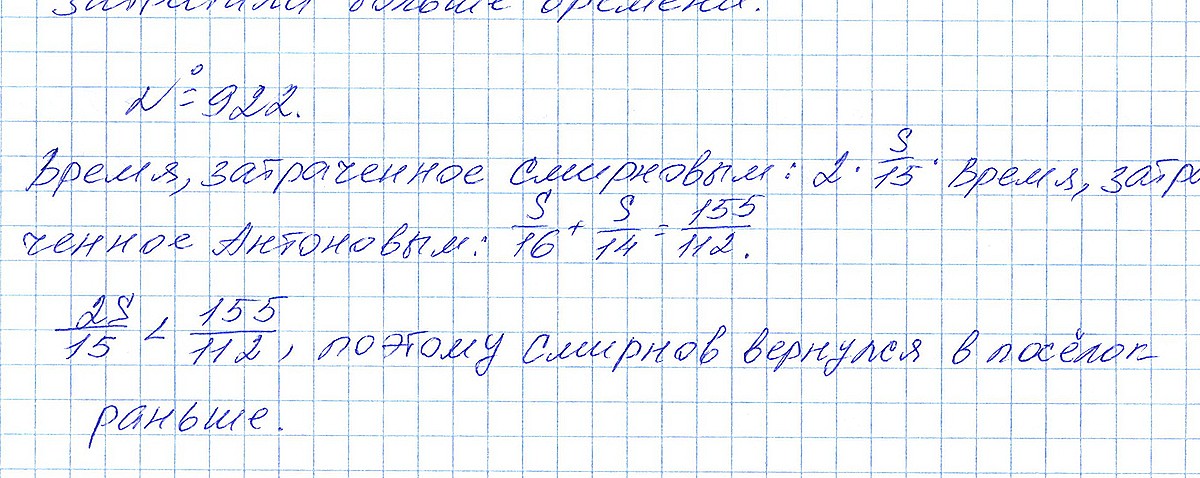 затратили больше времени.
№ 922.
Время, затраченное Смирновым: 2 · S/15. Время, затра
ченное Антоновым: S/16 + S/14 = 15S/112.
2S/15 < 15S/112, поэтому Смирнов вернулся в посёлок
раньше.